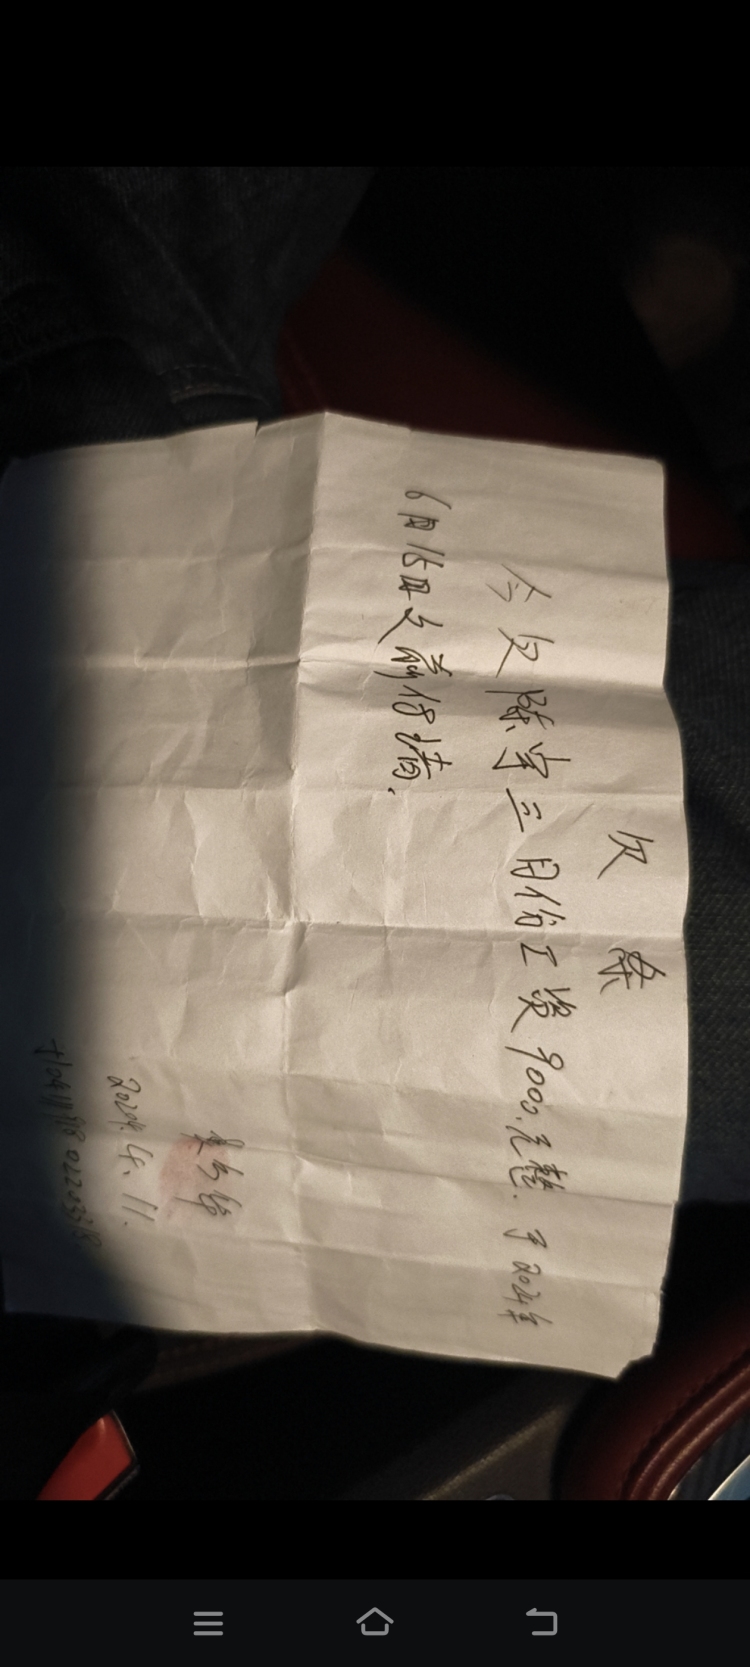 欠条
今欠陈宇三月份工资9000.元整.于2024年
6月15日之前付清.
2024.4.11.